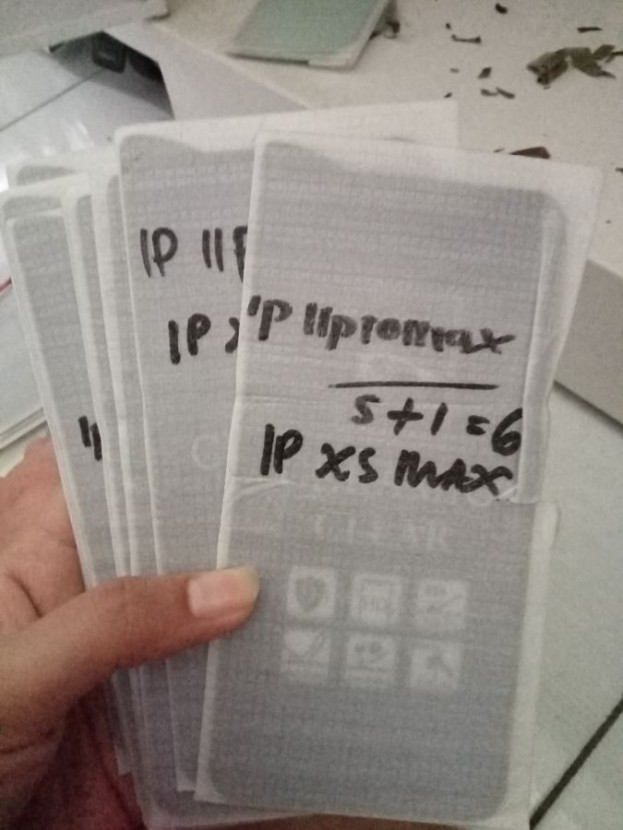 IP 11 P
IP X
IP 11promax
5+1=6
IP XS MAX
CLEAR